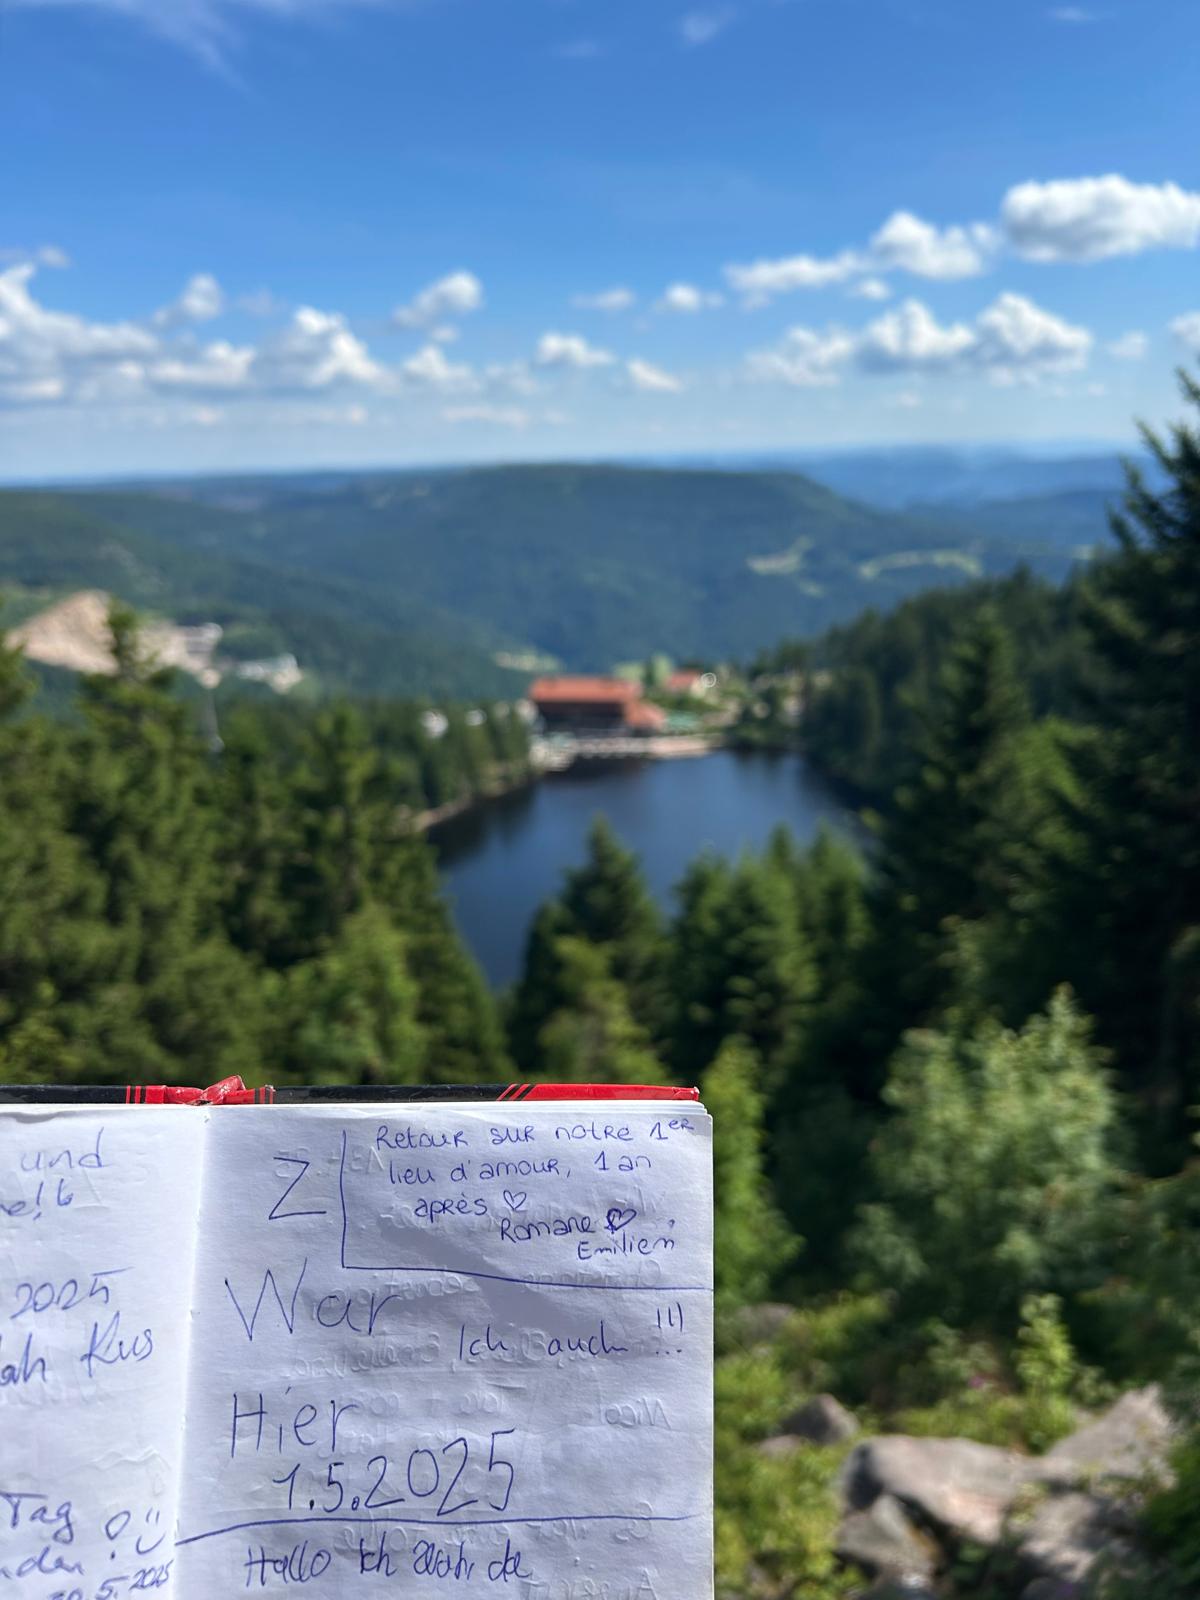 und
2025
Kus
Tag
20.5.2025
Z
Retour sur notre 1er
lieu d'amour, 1 an
après ♡
Romane ♡
Emilien
War
Ich auch !!!
Hier
1.5.2025
Hallo Ich de